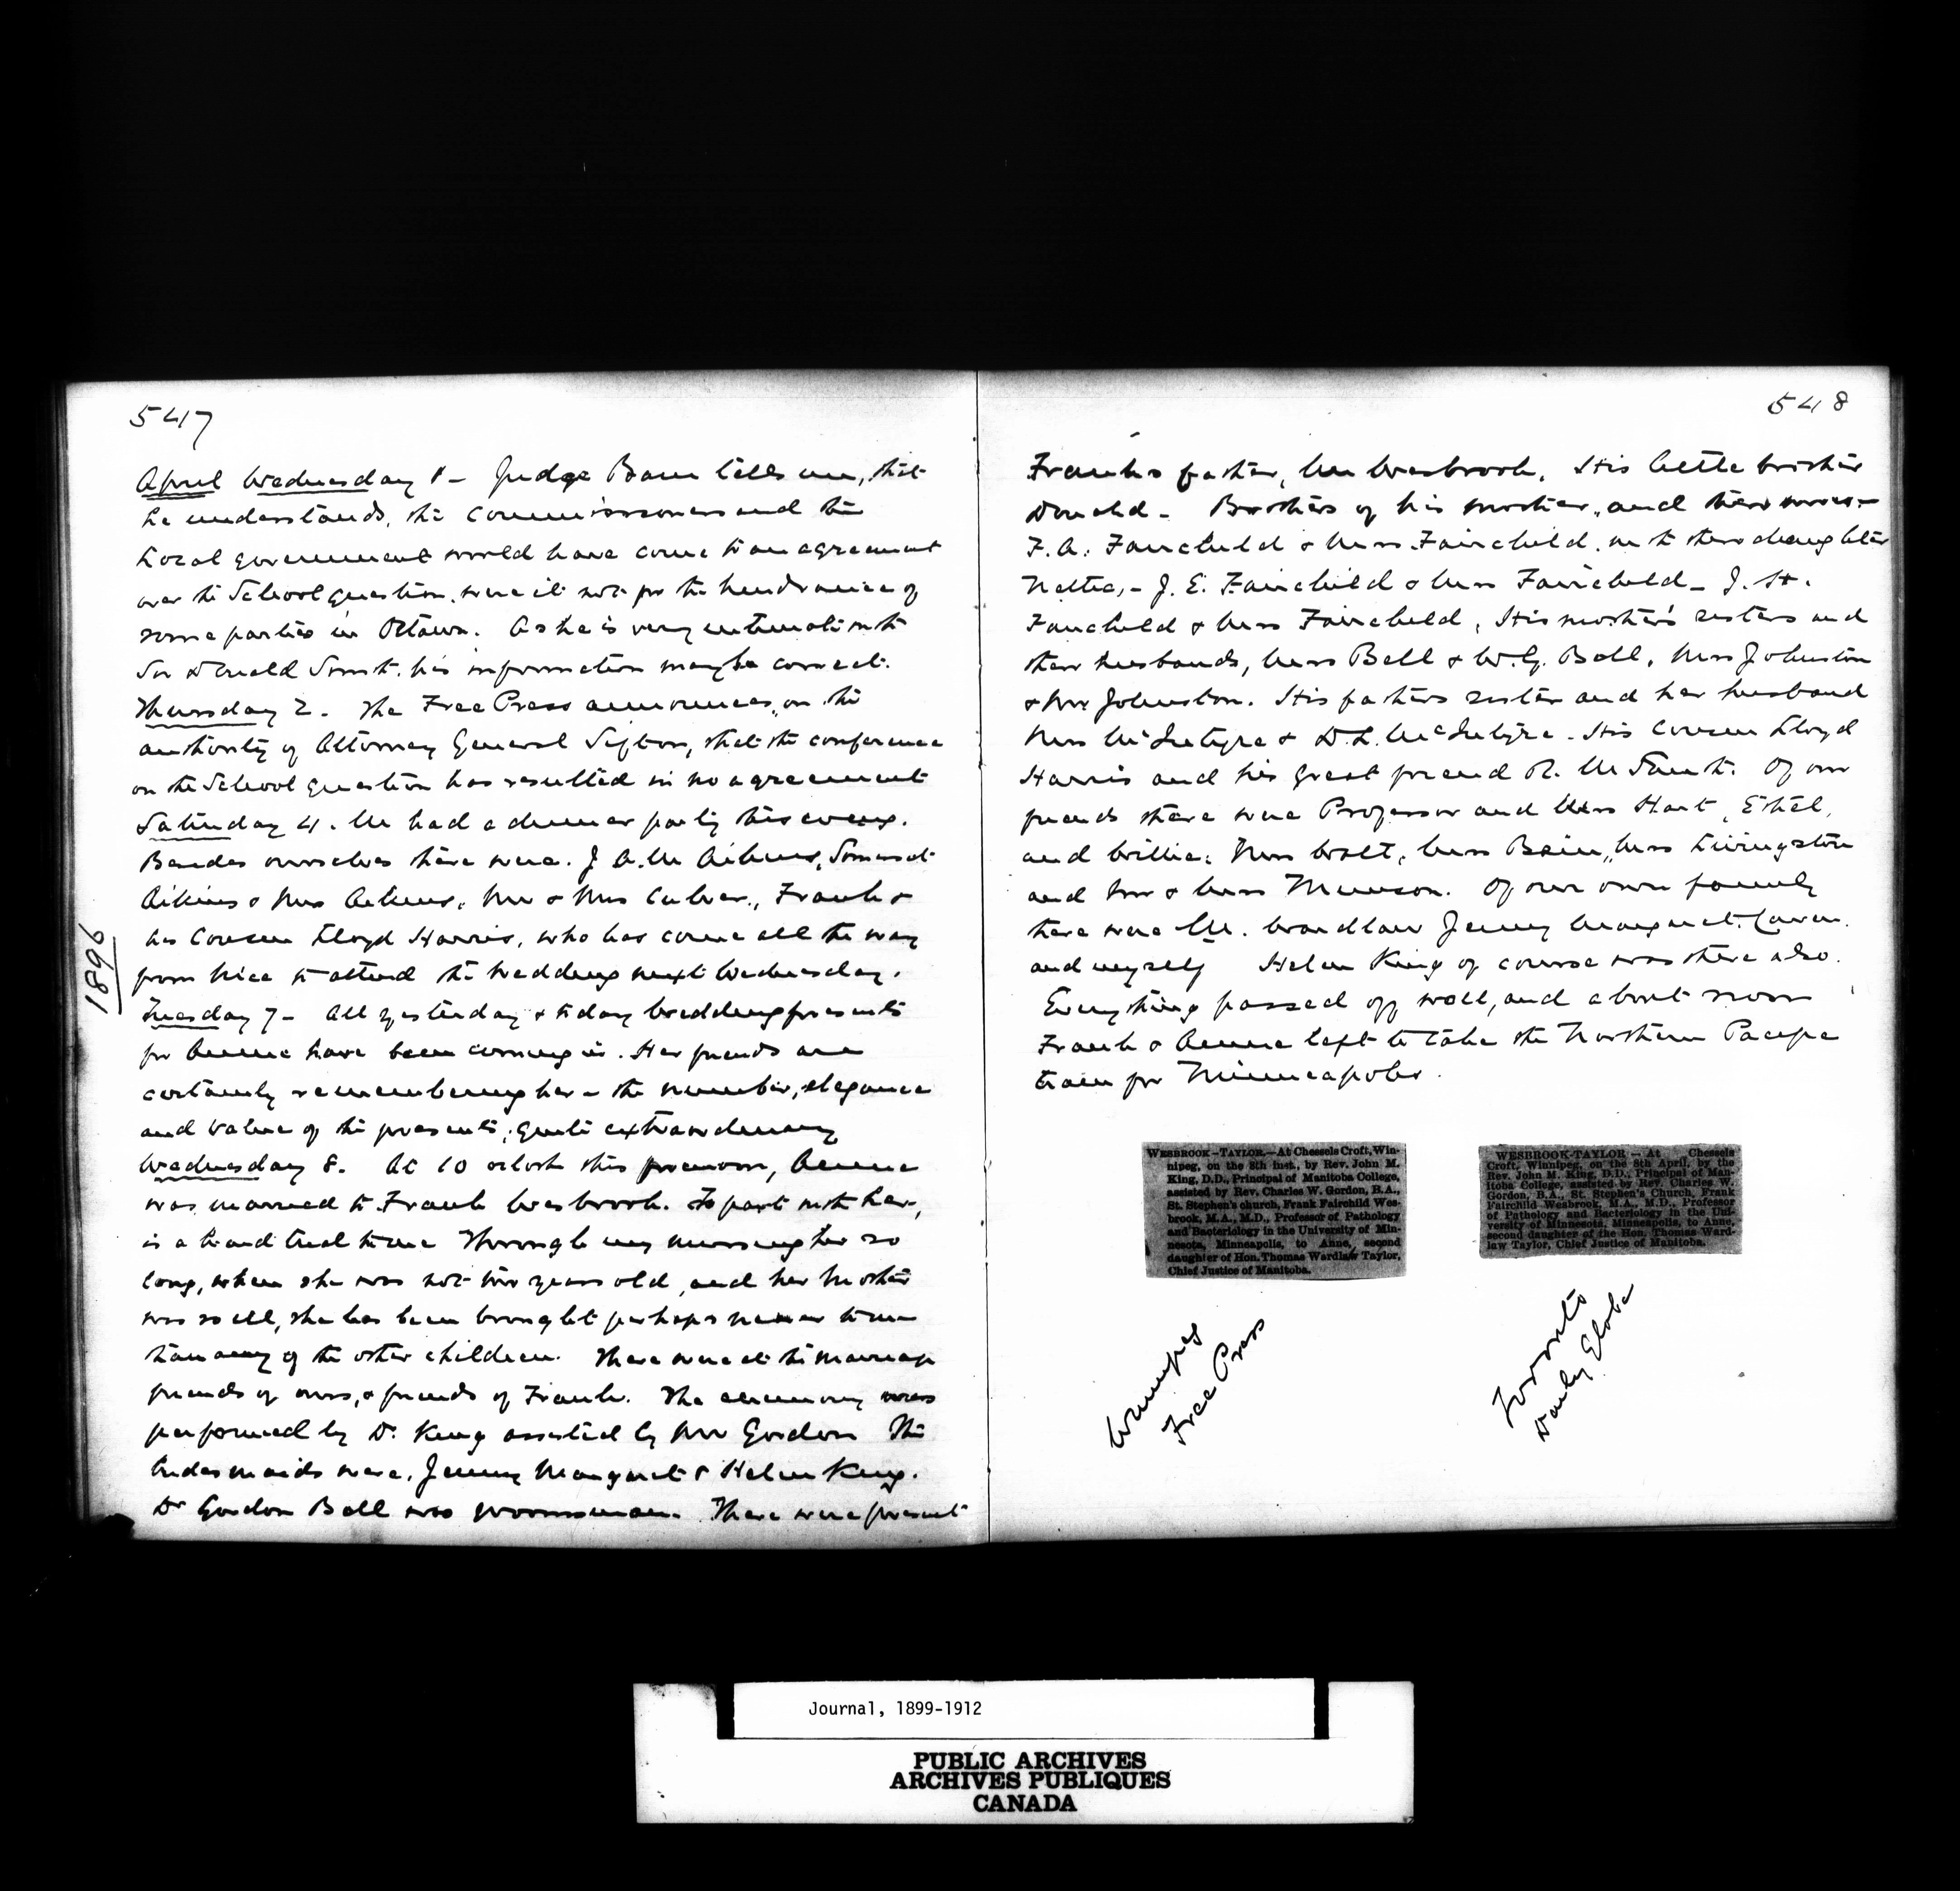 547
April Wednesday 1 - Judge Bain tells me, that
he understands, the Commissioners and the
Local Government would have come to an agreement
over the School question, were it not for the hindrance of
some parties in Ottawa. As he is very intimate with
Sir Donald Smith his information may be correct.
Thursday 2. The Free Press announces, on the
authority of Attorney General Sifton, that the conference
on the School question has resulted in no agreement
Saturday 4. We had a dinner party this eveng.
Besides ourselves there were. J A. M Aikins, Somerset
Aikins & Mrs Aikins, Mr & Mrs Culver, Frank &
his Cousin Lloyd Harris, who has come all the way
from to attend the wedding next Wednesday.
Tuesday 7 - All yesterday & today wedding presents
for Annie have been coming in. Her friends are
certainly remembering her - the number, elegance
and value of the presents, quite extraordinary
Wednesday 8. At 10 oclock this forenoon, Annie
was married to Frank Wesbrook. To part with her,
is a hard trial to me Through my nursing her so
long, when she was not two years old, and her Mother
was so ill, she has been brought perhaps nearer to me
than any of the other children. There were at the marriage
friends of ours, & friends of Frank. The ceremony was
performed by Dr. King assisted by Mr Gordon The
bridesmaids were, Jenny Margaret & Helen King.
Dr Gordon Bell was groomsman. There were present
1896
548
Franks father, Mr Wesbrook. His little brother
Donald - Brothers of his mother, and their wives -
F. A. Fairchild & Mrs. Fairchild. with their daughter
Nettie, - J. E. Fairchild & Mrs Fairchild - J. H.
Fairchild & Mrs Fairchild, His mother's sisters and
their husbands, Mrs Bell & W. G. Bell, Mrs Johnston
& Mr Johnston. His fathers sister and her husband
Mrs McIntyre & D. L. McIntyre - His Cousin Lloyd
Harris and his great friend R. M Smith. Of our
friends there were Professor and Mrs Hart, Ethel,
and Willie, Mrs Bain, Mrs Livingston
and Mr & Mrs Munson. Of our own family
there were M. Wardlaw Jenny Margaret, Caven.
and myself Helen King of course was there also.
Everything passed off well, and about noon
Frank & Annie left to take the Northern Pacific
train for Minneapolis.
WESBROOK-TAYLOR.—At Chessels Croft, Win-
nipeg, on the 8th inst., by Rev. John M.
King, D.D., Principal of Manitoba College,
assisted by Rev. Charles W. Gordon, B.A.,
St. Stephen's church, Frank Fairchild Wes-
brook, M.A., M.D., Professor of Pathology
and Bacteriology in the University of Min-
nesota, Minneapolis, to Anne, second
daughter of Hon. Thomas Wardlaw Taylor,
Chief Justice of Manitoba.
Winnipeg
Free Press
WESBROOK-TAYLOR — At Chessels
Croft, Winnipeg, on the 8th April, by the
Rev. John M. King, D.D., Principal of Man-
itoba College, assisted by Rev. Charles W.
Gordon, B.A., St. Stephen's Church, Frank
Fairchild Wesbrook, M.A., M.D., Professor
of Pathology and Bacteriology in the Uni-
versity of Minnesota, Minneapolis, to Anne,
second daughter of the Hon. Thomas Ward-
law Taylor, Chief Justice of Manitoba.
Toronto
Daily Globe
Journal, 1899-1912
PUBLIC ARCHIVES
ARCHIVES PUBLIQUES
CANADA